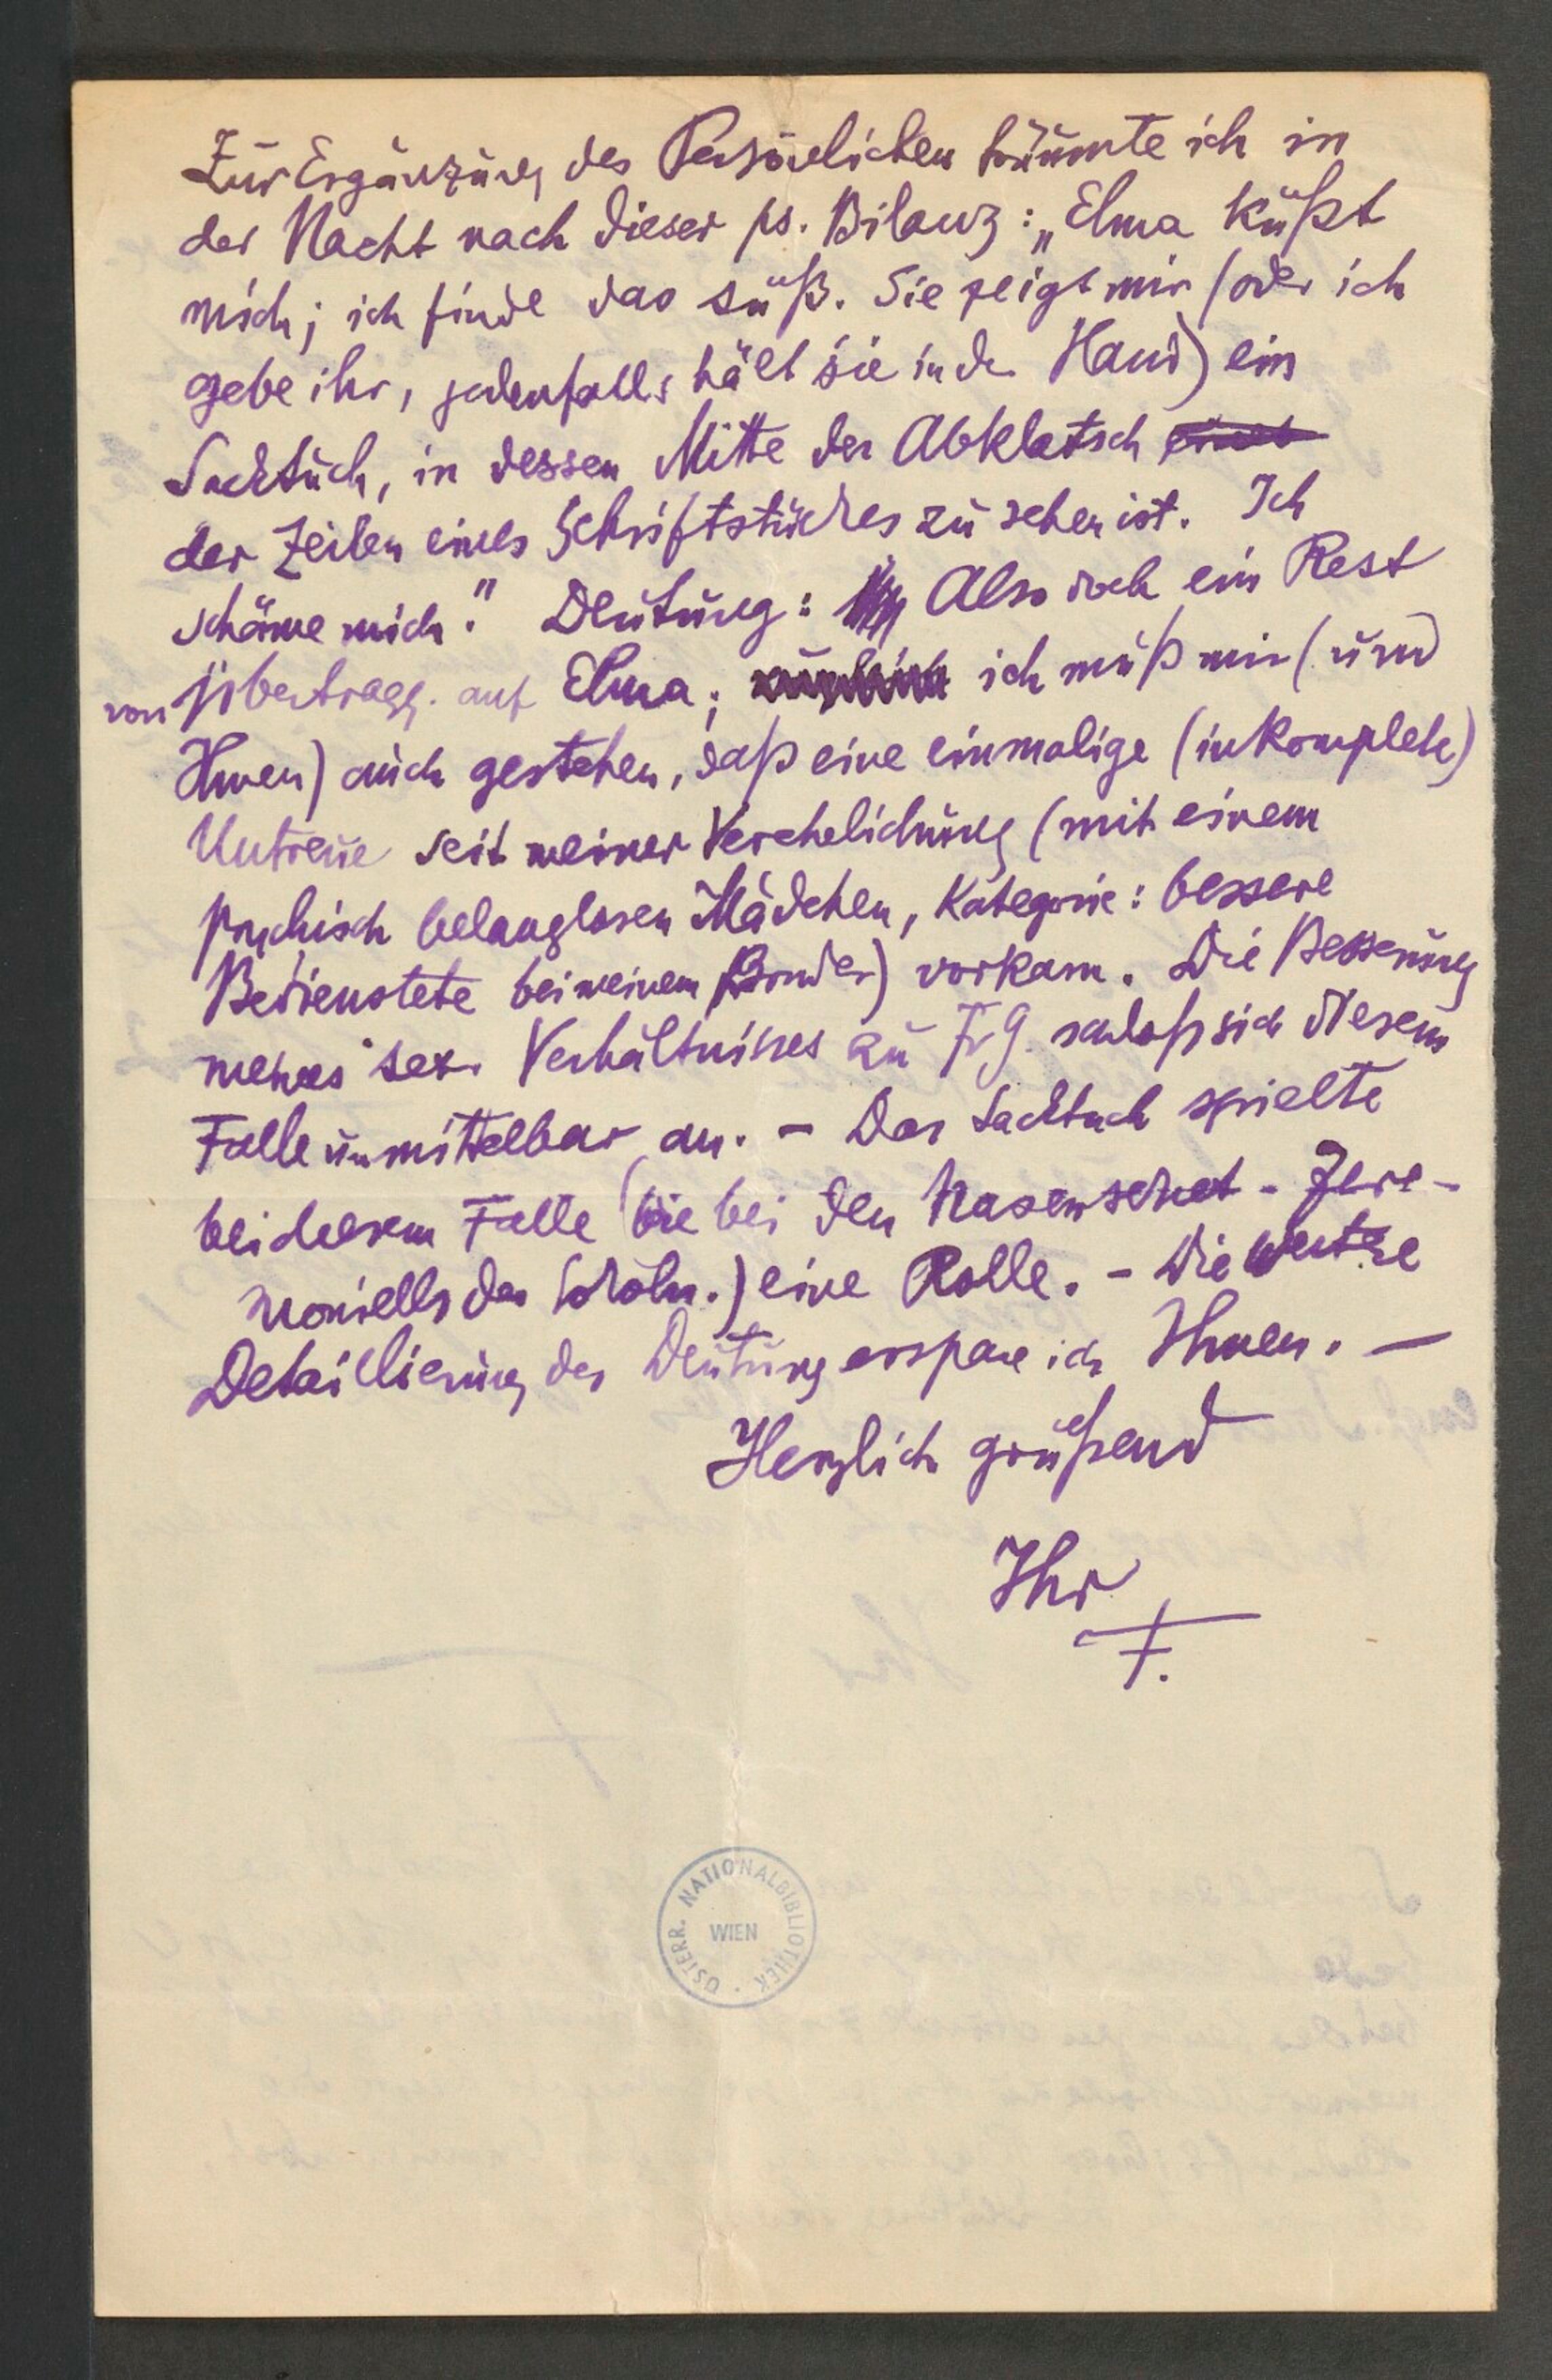 Zur Ergänzung des Persönlichen träumte ich in
der Nacht nach dieser ps. Bilanz: „Elma küßt
mich; ich finde das süß. Sie zeigt mir (oder ich
gebe ihr, jedenfalls hält sie in der Hand) ein
Sacktuch, in dessen Mitte der Abklatsch eines
der Zeilen eines Schriftstückes zu sehen ist. Ich
schäme mich." Deutung: Also doch ein Rest
von Übertragg. auf Elma; ich muß mir (und
Ihnen) auch gestehen, daß eine einmalige (inkomplete)
Untreue seit meiner Verehelichung (mit einem
psychisch belanglosen Mädchen, Kategorie: bessere
Bedienstete bei meinem Bruder) vorkam. Die Besserung
meines sex. Verhältnisses zu Fr G. schloß sich diesem
Falle unmittelbar an. – Das Sacktuch spielte
bei diesem Falle (wie bei den Nasensekret-Zere-
moniells der ) eine Rolle. – Die weitere
Detaillierung der Deutung erspare ich Ihnen. –
Herzlich grüßend
Ihr
F.
ÖSTERR. NATIONALBIBLIOTHEK
WIEN